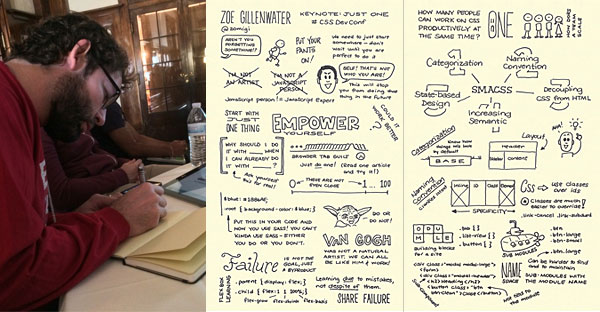 ZOE GILLENWATER
@zomigi
KEYNOTE: JUST ONE
# CSS Dev Conf
AREN'T YOU
FORGETTING
SOMETHING!?
PUT YOUR
PANTS
ON!
We need to just start
somewhere - don't
wait until you are
perfect to do it
I'M NOT
AN ARTIST
I'M NOT A
JAVASCRIPT
PERSON
SELF! THAT'S NOT
WHO YOU ARE!
This will stop
you from doing that
thing in the future
JavaScript person != JavaScript Expert
START WITH
JUST
ONE THING
EMPOWER
YOURSELF
COULD IT
WORK BETTER
WHY SHOULD I DO
IT WITH ___ WHEN
I CAN ALREADY DO
IT WITH ___?
Ask yourself
this for real!
BROWSER TAB GUILT
Just do one! (Read one article
and try it!)
0
THESE ARE NOT
EVEN CLOSE
1 ... 100
$blue: #1886AF;
:root { background-color: $blue; }
PUT THIS IN YOUR CODE AND
NOW YOU USE SASS! YOU CAN'T
KINDA USE SASS - EITHER
YOU DO OR YOU DON'T.
DO OR
DO NOT!
VAN GOGH
WAS NOT A NATURAL
ARTIST. WE CAN ALL
BE LIKE HIM & WORK!
Failure
IS NOT THE
GOAL, JUST
A BYPRODUCT
Learning due to mistakes,
not despite of them.
SHARE FAILURE
FLEX BOX
LEARNING
.parent { display: flex; }
.child { flex: 1 1 100%; }
flex-grow flex-shrink flex-basis
HOW MANY PEOPLE
CAN WORK ON CSS
PRODUCTIVELY AT
THE SAME TIME?
ONE
HOW DOES
A TEAM
SCALE
Categorization
Naming
Convention
State-based
Design
SMACSS
Decoupling
CSS from HTML
Increasing
Semantic
Categorization
Know how
things will look
by default
BASE
Layout
Header
Sidebar
Content
Naming
Convention
Inline
ID
Class
Element
SPECIFICITY
Css → use classes
over ids
Classes are much
easier to override!
MODULE
Building blocks
for a site
.box { }
.list-view { }
.button { }
SUB MODULES
Can be harder to
find and to maintain
.btn
.btn-small
.btn-large
<div class="modal modal-large">
<form>
<div class="modal-header">
<h3>Heading</h3>
<button class="btn
btn-large
NAME
SPACE
SUB-MODULES WITH
THE MODULE NAME